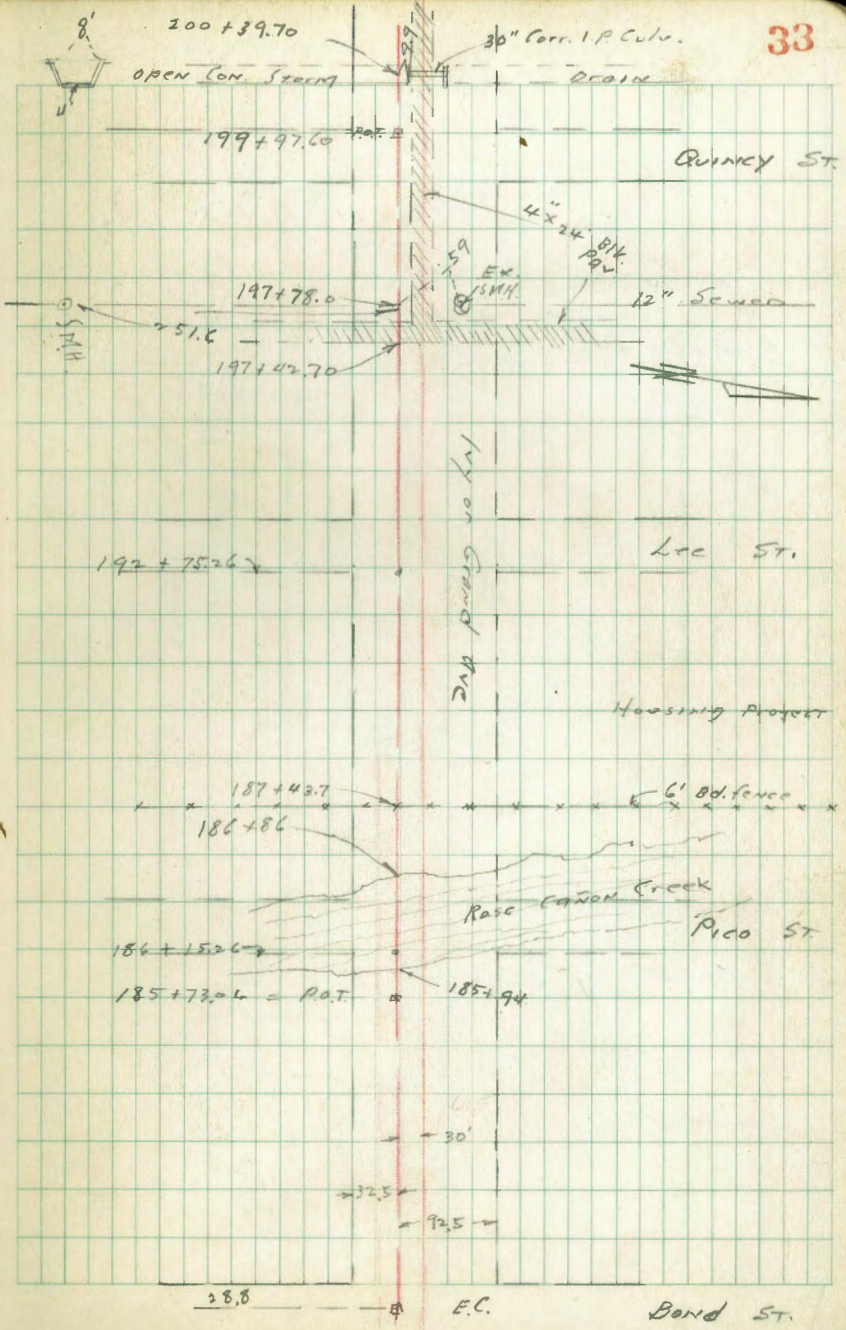 33
8'
200 + 39.70
30" Corr. I P. Culv.
29.9
OPEN Con. Storm Drain
199 + 97.60 P.O.T.
Quincy ST.
4" x 24' Blk. Pav
59
Ex. SMH.
197+78.0
12" Sewer
S.M.H.
251.6
197+42.70
Lee ST.
192 + 75.26
Housing Project
187+43.7
6' Bd. fence
186+86
Rose Cañon Creek
Pico ST
186 + 15.26
185+94
185+73.06 = P.O.T.
30'
32.5
92.5
28.8
E.C.
Bond ST.